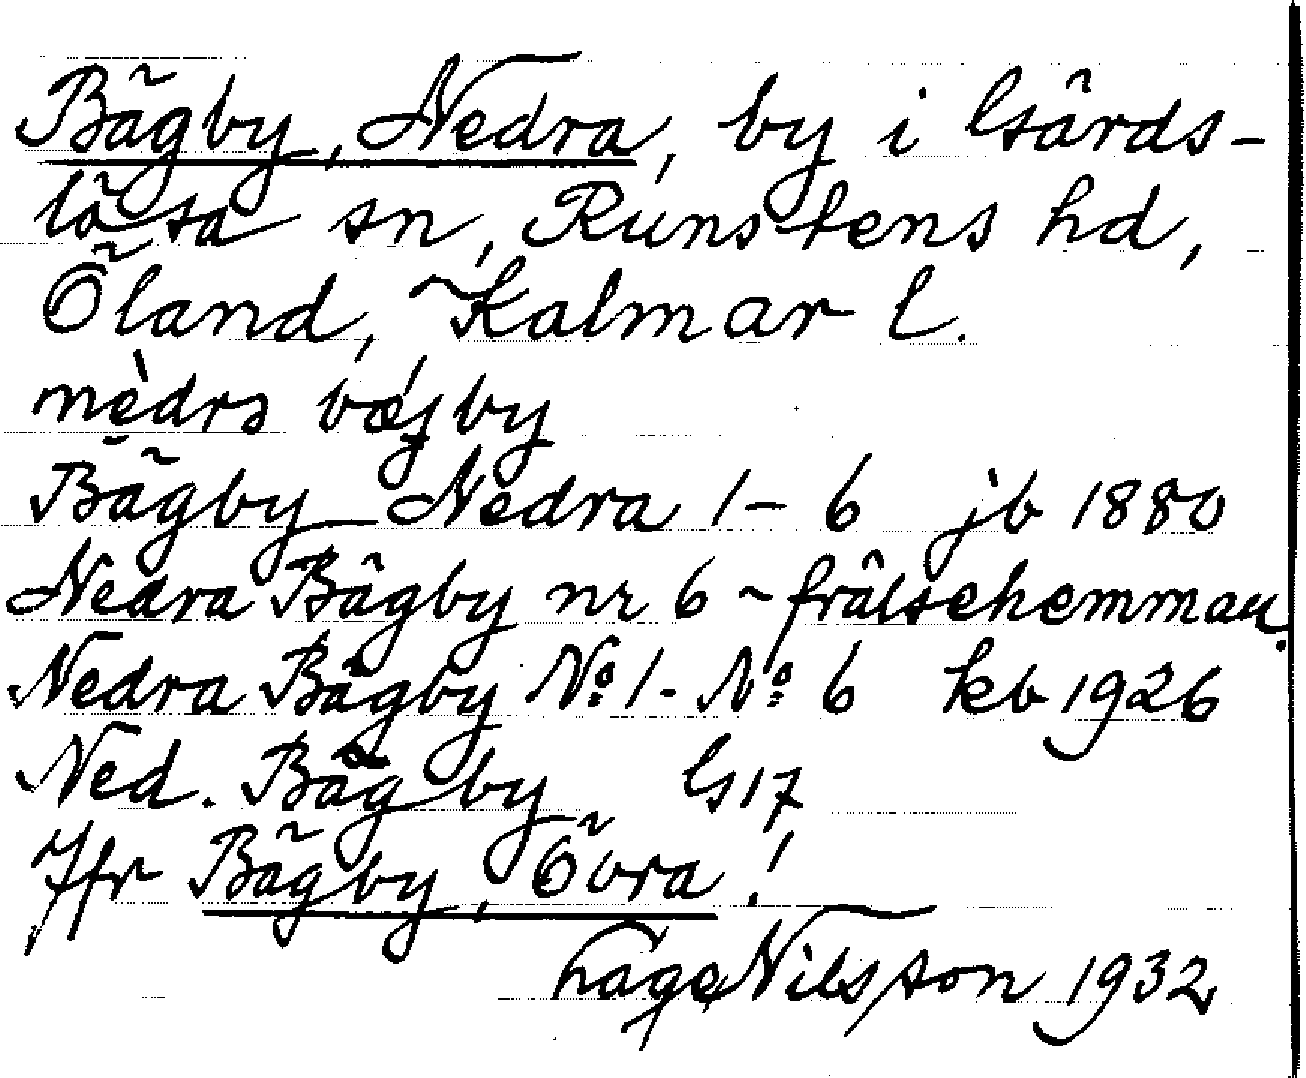 Bägby, Nedra, by i Gärds-
lösa sn, Runstens hd,
Öland, Kalmar l.
Bägby Nedra 1-6 jb 1880
Nedra Bägby nr 6 ~ frälsehemman.
Nedra Bägby No 1 - No 6 kb 1926
Ned. Bägby G 17
Jfr Bägby, Övra!
Hage Nilsson 1932